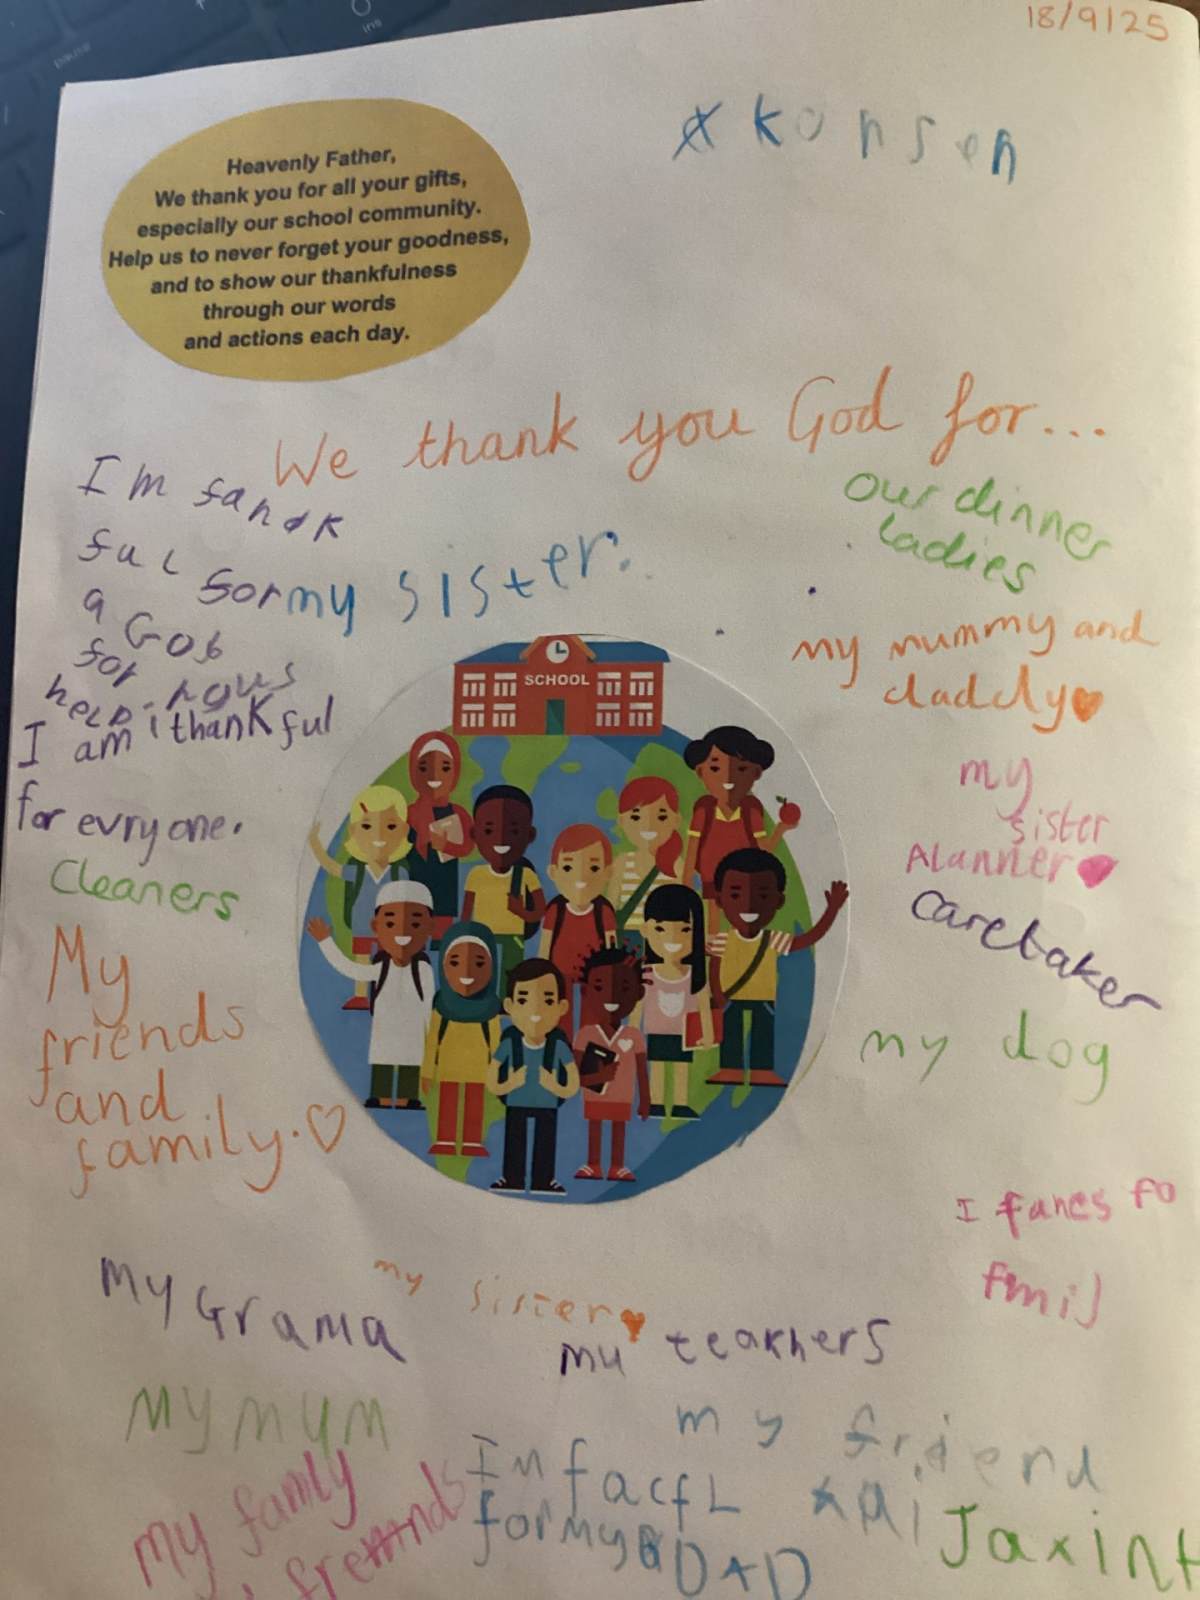 18/9/25
konsen
Heavenly Father,
We thank you for all your gifts,
especially our school community.
Help us to never forget your goodness,
and to show our thankfulness
through our words
and actions each day.
We thank you God for...
I'm fank
ful for my sister.
a God
for
help
our dinner
ladies
my mummy and
daddy
SCHOOL
I am thankful
for evryone.
Cleaners
my
sister
Alanner
Caretaker
My
friends
and
family.
my dog
I fancs fo
fmil
My Grama
my sister
my teakhers
My mum
my friend
Kai
Jaxint
my family
In facfL
for my DAD
pause
ins